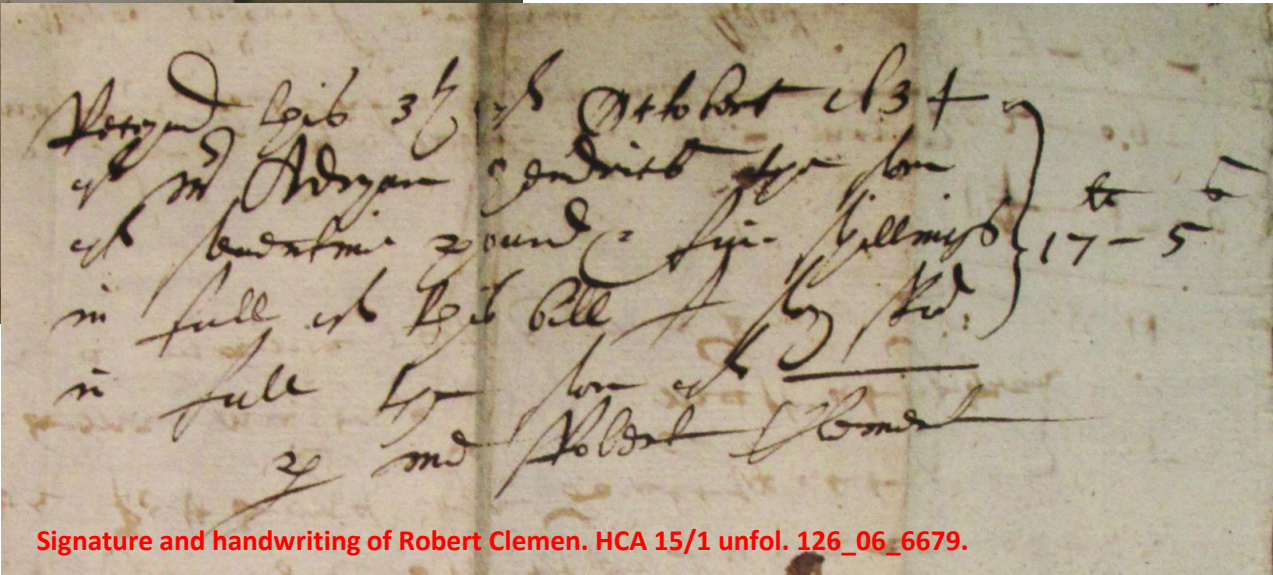 Receyued this 3th of Octobert 1634
of mr Adryan Hendricks the som
of seuentine pound & fiue shillings
li s
17 - 5
in full of this bill I say Rd
in full the som of
p me Robert Clement
Signature and handwriting of Robert Clemen. HCA 15/1 unfol. 126_06_6679.